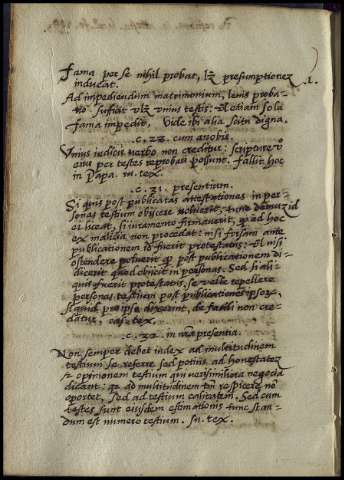 fama per se nihil probat, lz presumptionez
.1.
inducat.
Ad impediendum matrimonium, leuis proba=
tio sufficit vlz vnius testis: et etiam sola
fama impedit. Vide ibi alia scitu digna.
.c. 28. cum a nobis.
Vnius iudicis verbo non creditur: scripture v
eius per testes reprobari possunt. fallit hoc
in Papa. in. tex.
.c. 31. presentium.
Si quis post publicatas attestationes in per=
sonas testium obijcere voluerit, tunc demuz id
ei liceat, si iuramento firmauerit, quod hoc
ex malitia non procedat: nisi forsan ante
publicationem id fuerit protestatus: vel nisi
ostendere poterit qz post publicationem di=
dicerit quod obijcit in personas. Sed si ali=
quis fuerit protestatus, se velle repellere
personas testium post publicationez ipsoz,
si quid pro ipso dixerint, de facili non cre=
datur. tex.
.c. 32. in nra presentia.
Non semper debet iudex ad multitudinem
testium se referre sed potius ad honestatez
et opinionem testium qui verisimiliora negocia
dicant: qz ad multitudinem tm respicere no
oportet, sed ad testium calitatem. Sed cum
testes sunt eiusdem estimationis tunc stan=
dum est numero testium. in. tex.